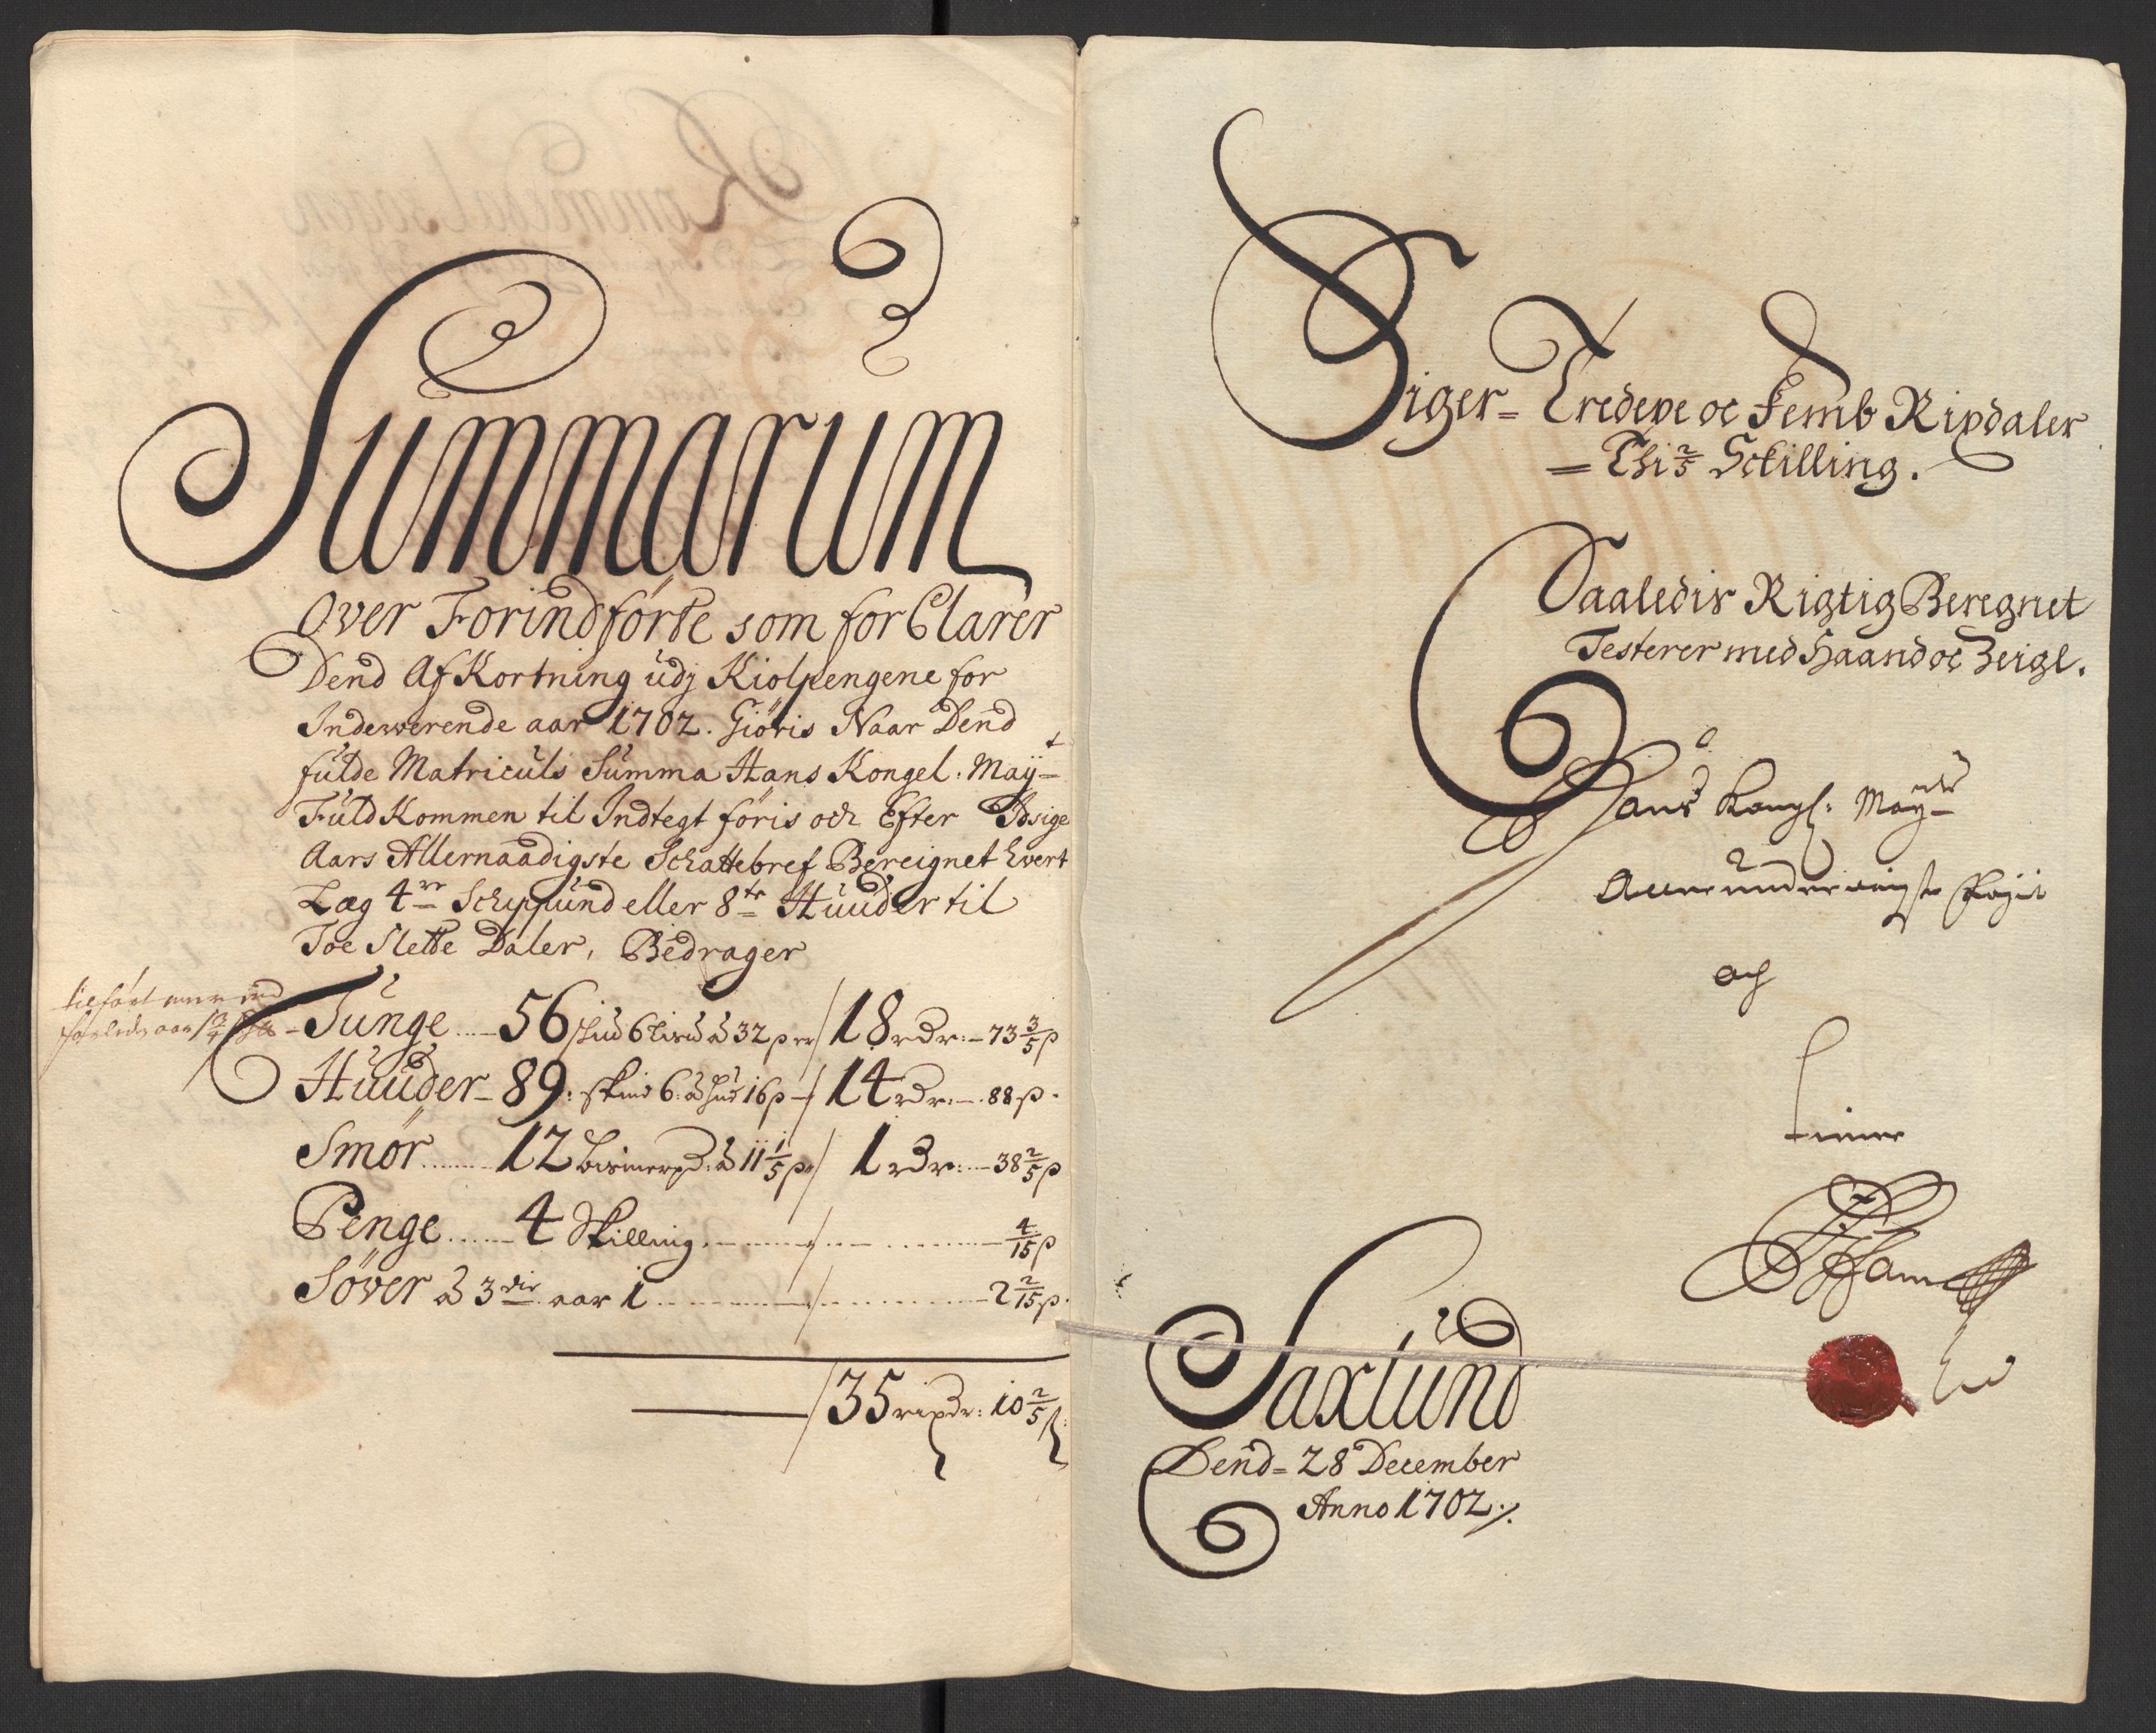 Summarum
Over Forindförte som forClarer
Dend AfKortning udj Kiolpengene for
Indewerende aar 1702. Giöris Naar Dend
fulde Matriculs Summa Hans Kongel. Mayt
FuldKommen til Indtegt föris och Efter Idsige
Aars Allernaadigste Schattebref Bereignet hvert
Læg 4re Schippund eller 8te Huuder til
Toe Slette Daler, Bedrager
Tunge 56 6 a 32 p 18 rdr: 73 3/5 p
Huuder 89: skind 6: a hud 16 p 14 rdr: 88 p.
Smör 12 bismerpd: a 11 1/5 p 1 rdr: 38 2/5 p
Penge 4 Skilling 4/15 p
Söver a 3 aar 1 2 2/15 p.
35 rixdr: 10 2/5 p:
Siger= Tredeve oc Femb Rixdaler
= Thi 2/5 Schilling.
Saaledis Rigtig Beregnet
Testerer med Haand oc Zeigl.
Hans Kongl: Mayts
och
tiener
Saxlund
Dend= 28 December
Anno 1702 ./.